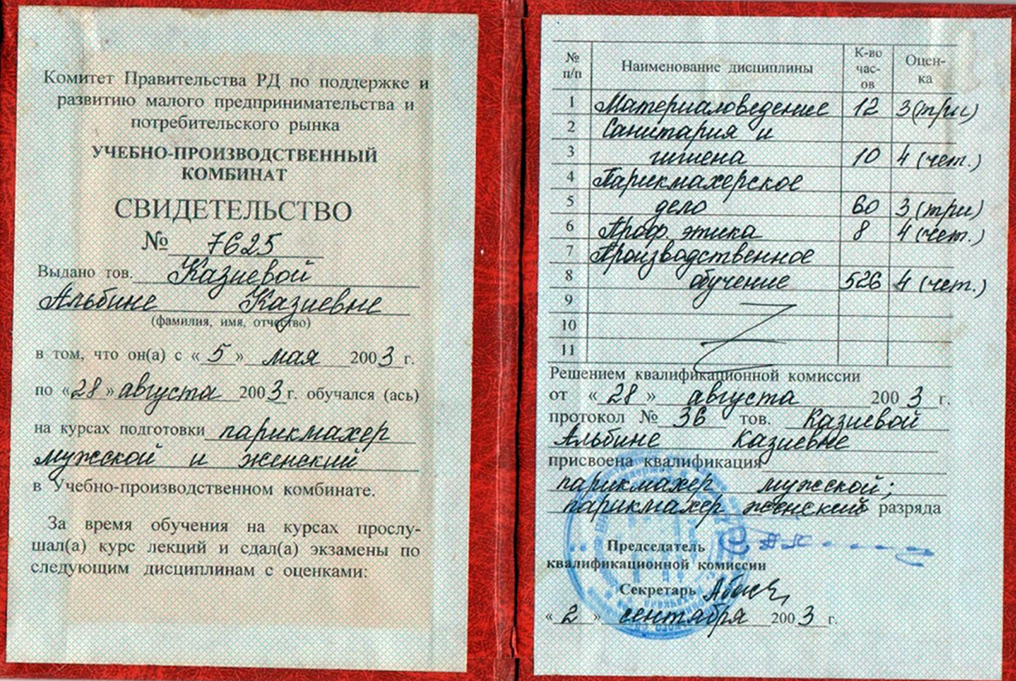 Комитет Правительства РД по поддержке и
развитию малого предпринимательства и
потребительского рынка
УЧЕБНО-ПРОИЗВОДСТВЕННЫЙ
КОМБИНАТ
СВИДЕТЕЛЬСТВО
№ 7625
Выдано тов. Казиевой
Альбине Казиевне
(фамилия, имя, отчество)
в том, что он(а) с «5» мая 2003 г.
по «28» августа 2003 г. обучался (ась)
на курсах подготовки парикмахер
мужской и женский
в Учебно-производственном комбинате.
За время обучения на курсах прослу-
шал(а) курс лекций и сдал(а) экзамены по
следующим дисциплинам с оценками:
№ п/п Наименование дисциплины К-во час-ов Оцен-ка
1 Материаловедение 12 3 (три)
2 Санитария и
3 гигиена 10 4 (чет.)
4 Парикмахерское
5 дело 60 3 (три)
6 Проф. этика 8 4 (чет.)
7 Производственное
8 обучение 526 4 (чет.)
9
10
11
Решением квалификационной комиссии
от «28» августа 2003 г.
протокол № 36 тов. Казиевой
Альбине Казиевне
присвоена квалификация
парикмахер мужской;
парикмахер женский разряда
Председатель
квалификационной комиссии
Секретарь
«2» сентября 2003 г.